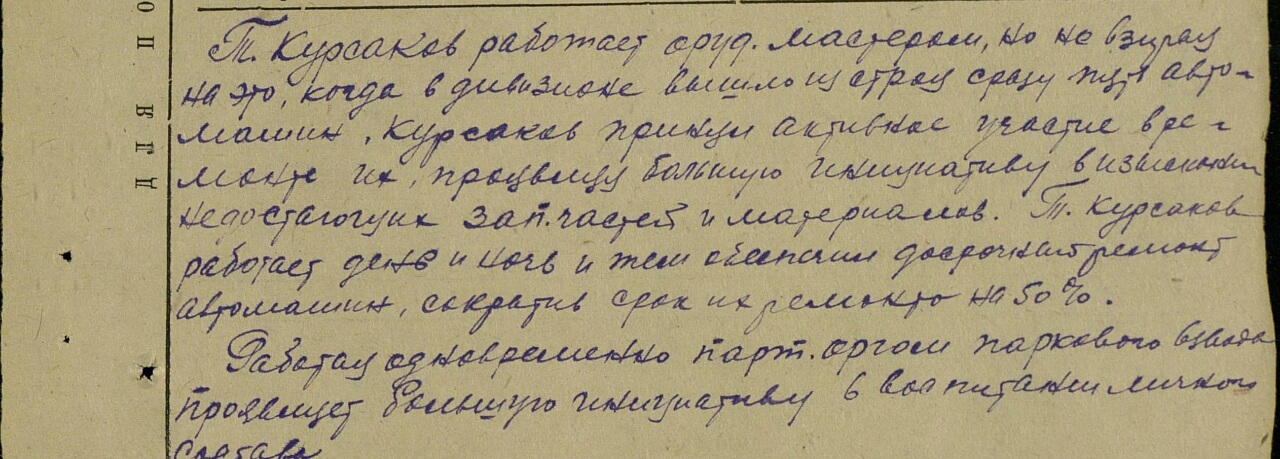 Т. Курсаков работает оруд. мастером, но не взирая
на это, когда в дивизионе вышло из строя сразу пять авто-
машин, Курсаков принял активное участие в ре-
монте их, проявляя большую инициативу в изыскании
недостающих зап.частей и материалов. Т. Курсаков
работает день и ночь и тем обеспечил досрочный ремонт
автомашин, сократив срок их ремонта на 50%.
Работая одновременно парт.оргом паркового взвода
проявляет большую инициативу в воспитании личного
состава